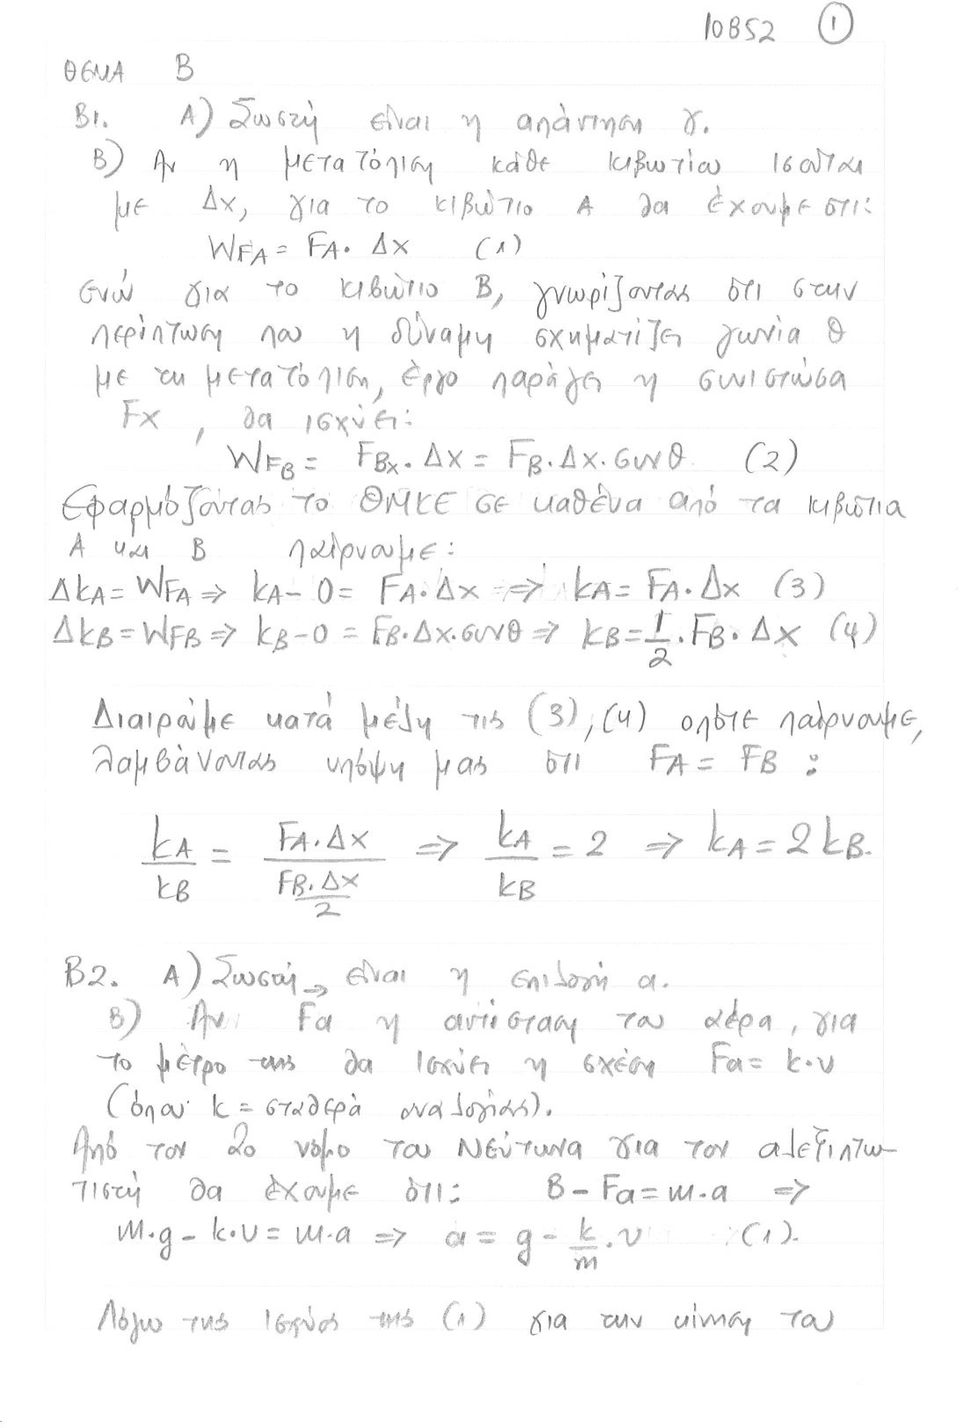 10852 ①
ΘΕΜΑ Β
Β1. Α) Σωστή είναι η απάντηση γ.
Β) Αν η μετατόπιση κάθε κιβωτίου ισούται
με Δx, για το κιβώτιο Α θα έχουμε ότι:
WFA = FA · Δx (1)
ενώ για το κιβώτιο Β, γνωρίζοντας ότι στην
περίπτωση που η δύναμη σχηματίζει γωνία θ
με τη μετατόπιση, έργο παράγει η συνιστώσα
Fx, θα ισχύει:
WFB = FBx · Δx = FB · Δx · συνθ (2)
Εφαρμόζοντας το ΘΜΚΕ σε καθένα από τα κιβώτια
Α και Β παίρνουμε:
ΔkA = WFA ⇒ kA - 0 = FA · Δx ⇒ kA = FA · Δx (3)
ΔkB = WFB ⇒ kB - 0 = FB · Δx · συνθ ⇒ kB = 1/2 · FB · Δx (4)
Διαιρούμε κατά μέλη τις (3), (4) οπότε παίρνουμε,
λαμβάνοντας υπόψη μας ότι FA = FB :
kA/kB = FA · Δx / (FB · Δx / 2) ⇒ kA/kB = 2 ⇒ kA = 2kB.
Β2. Α) Σωστή είναι η επιλογή α.
Β) Αν Fα η αντίσταση του αέρα, για
το μέτρο της θα ισχύει η σχέση Fα = k · υ
(όπου k = σταθερά αναλογίας).
Από τον 2ο νόμο του Νεύτωνα για τον αλεξιπτω-
τιστή θα έχουμε ότι: Β - Fα = m · α ⇒
m · g - k · υ = m · α ⇒ α = g - k/m · υ (1).
Λόγω της ισχύος της (1) για την κίνηση του